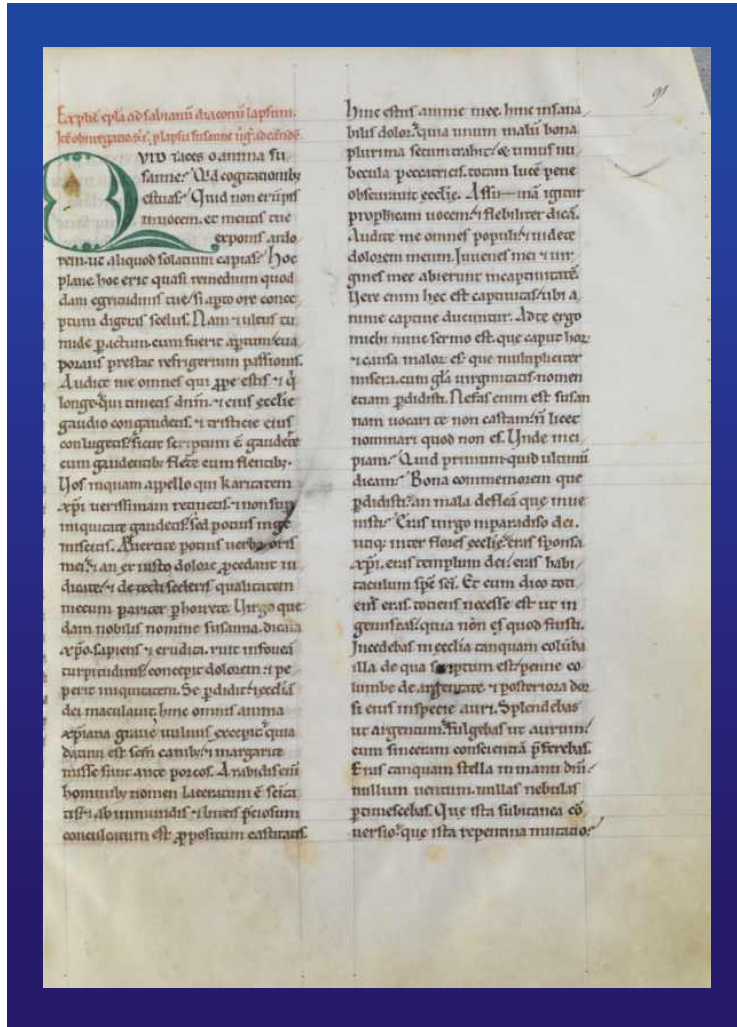 Explic̄ ep̄la ad sabianū diaconū lapsum.
VID taces o anima su
sanne? Qd̄ cogitationibꝫ
estuas? Quid non erūpis
in uocem. et mentis tue
exponis ardo
rem. ut aliquod solatium capias? hoc
plane hoc erit quasi remedium quod
dam egritudinis tue, si apto ore concep
ptum digeris scelus. Nam ⁊ ulcus tu
mide ꝑactum. cum fuerit aꝑtum, eua
porans prestat refrigerium passionis.
Audite me omnes qui ꝓpe estis ⁊ q̄
longe. qui timetis dn̄m. ⁊ eius ęcclię
gaudio congaudetis. ⁊ tristicię eius
conlugetis. sicut scriptum ē gaudete
cum gaudentibꝫ flete cum flentibꝫ.
Uos inquam appello qui karitatem
xp̄i uerissimam retinetis. ⁊ non sup
iniquitate gaudetis. sed potius inge
miscitis. Auertite potius uerba oris
mei. ⁊ an ex iusto dolore ꝓcedant iu
dicate. ⁊ detecti sceleris qualitatem
mecum pariter ꝑhorrete. Uirgo que
dam nobilis nomine susanna. dicata
xp̄o. sapiens ⁊ erudita. ruit in foueā
turpitudinis. concepit dolorem. ⁊ pe
perit iniquitatem. Se ꝑdidit. ⁊ ęcclīa
dei maculauit. hinc omnis anima
xp̄iana graue uulnus excepit. quia
datum est scm̄ canibꝫ. ⁊ margarite
misse sunt ante porcos. A rabidis eni
hominibꝫ nomen laceratum ē sc̄ita
tis. ⁊ ab inmundis ⁊ luteis p̄ciosum
conculcatum est ꝓpositum castitatis.
91
hinc estus anime mee. hinc insana
bilis dolor. quia unum malū bona
plurima secum trahit. & unius nu
becula peccatricis. totam lucē pene
obscurauit ęcclię. Assumā igitur
prophicam uocem. ⁊ flebiliter dicā.
Audite me omnes populi. ⁊ uidete
dolorem meum. Iuuenes mei ⁊ uir
gines mee abierunt in captiuitatē.
Uere enim hec est captiuitas. ubi a
nime captiue ducuntur. Ad te ergo
michi nunc sermo est. que caput hoꝝ
⁊ causa maloꝝ es. que multipliciter
misera. cum gl̄a uirginitatis. nomen
etiam ꝑdidisti. Nefas enim est susan
nam uocari te non castam. n̄ licet
nominari quod non es. Unde inci
piam? Quid primum. quid ultimū
dicam? Bona commemorem que
ꝑdidisti. an mala defleā que inue
nisti? Eras uirgo in paradiso dei.
utiqꝫ inter flores ęcclię. eras sponsa
xp̄i. eras templum dei. eras habi
taculum sp̄c sc̄i. Et cum dico toti
ens eras. totiens necesse est ut in
gemiscas. quia non es quod fuisti.
Incedebas in ecclia tanquam colūba
illa de qua scriptum est. penne co
lumbe de argentate ⁊ posteriora dor
si eius in specie auri. Splendebas
ut argentum. fulgebas ut aurum.
cum sinceram conscientiā p̄ferebas.
Eras tanquam stella in manu dn̄i.
nullum uentum. nullas nebulas
ꝑtimescebas. Que ista subitanea cō
uersio. que ista repentina mutatio?